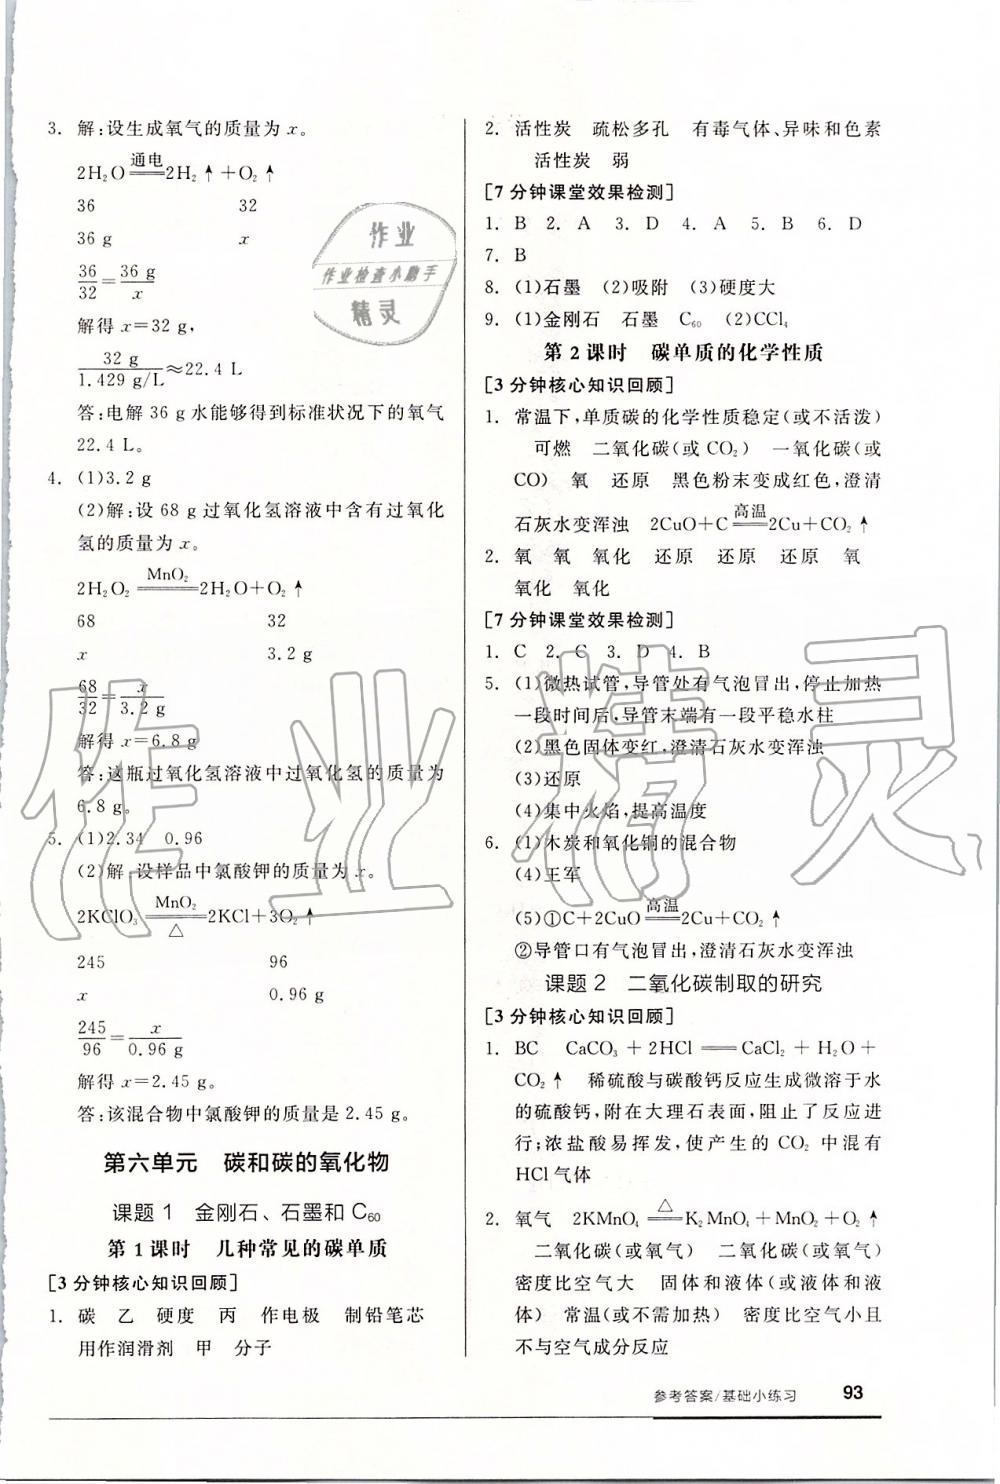 3. 解:设生成氧气的质量为x。
2H₂O 通电 2H₂↑+O₂↑
36 32
36 g x
36/32=36 g/x
解得x=32 g,
32 g/1.429 g/L≈22.4 L
答:电解36 g水能够得到标准状况下的氧气
22.4 L。
4. (1)3.2 g
(2)解:设68 g过氧化氢溶液中含有过氧化
氢的质量为x。
2H₂O₂ MnO₂ 2H₂O+O₂↑
68 32
x 3.2 g
68/32=x/3.2 g
解得x=6.8 g
答:这瓶过氧化氢溶液中过氧化氢的质量为
6.8 g。
5. (1)2.34 0.96
(2)解:设样品中氯酸钾的质量为x。
2KClO₃ MnO₂ △ 2KCl+3O₂↑
245 96
x 0.96 g
245/96=x/0.96 g
解得x=2.45 g。
答:该混合物中氯酸钾的质量是2.45 g。
第六单元 碳和碳的氧化物
课题1 金刚石、石墨和C₆₀
第1课时 几种常见的碳单质
[3分钟核心知识回顾]
1. 碳 乙 硬度 丙 作电极 制铅笔芯
用作润滑剂 甲 分子
2. 活性炭 疏松多孔 有毒气体、异味和色素
活性炭 弱
[7分钟课堂效果检测]
1. B 2. A 3. D 4. A 5. B 6. D
7. B
8. (1)石墨 (2)吸附 (3)硬度大
9. (1)金刚石 石墨 C₆₀ (2)CCl₄
第2课时 碳单质的化学性质
[3分钟核心知识回顾]
1. 常温下,单质碳的化学性质稳定(或不活泼)
可燃 二氧化碳(或CO₂) 一氧化碳(或
CO) 氧 还原 黑色粉末变成红色,澄清
石灰水变浑浊 2CuO+C 高温 2Cu+CO₂↑
2. 氧 氧 氧化 还原 还原 还原 氧
氧化 氧化
[7分钟课堂效果检测]
1. C 2. C 3. D 4. B
5. (1)微热试管,导管处有气泡冒出,停止加热
一段时间后,导管末端有一段平稳水柱
(2)黑色固体变红,澄清石灰水变浑浊
(3)还原
(4)集中火焰,提高温度
6. (1)木炭和氧化铜的混合物
(4)王军
(5)①C+2CuO 高温 2Cu+CO₂↑
②导管口有气泡冒出,澄清石灰水变浑浊
课题2 二氧化碳制取的研究
[3分钟核心知识回顾]
1. BC CaCO₃+2HCl══CaCl₂+H₂O+
CO₂↑ 稀硫酸与碳酸钙反应生成微溶于水
的硫酸钙,附在大理石表面,阻止了反应进
行;浓盐酸易挥发,使产生的CO₂中混有
HCl气体
2. 氧气 2KMnO₄ △ K₂MnO₄+MnO₂+O₂↑
二氧化碳(或氧气) 二氧化碳(或氧气)
密度比空气大 固体和液体(或液体和液
体) 常温(或不需加热) 密度比空气小且
不与空气成分反应
参考答案/基础小练习 93
作业
作业检查小助手
精灵
作业精灵